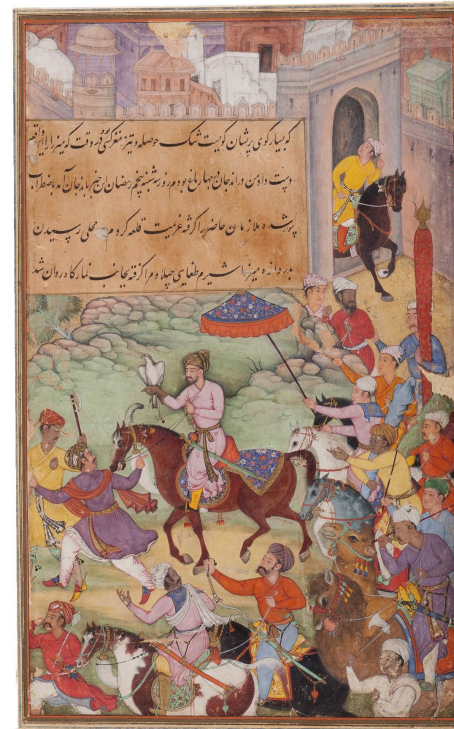 که بسیار کوی پریشان کوست تنک حوصله و تیز مغز کسی بود در وقت که میرزا را این واقعه
دست داد من در اندجان در چهار باغ بودم روز سه شنبه پنجم رمضان این خبر به اندجان آمد به اضطراب
سوار شده ملازمان حاضر را گرفته عزیمت قلعه کردم محلی رسیدن
بدروازه میرزا شیرم طغایی جلو مرا گرفته بجانب نمازکاه روان شد